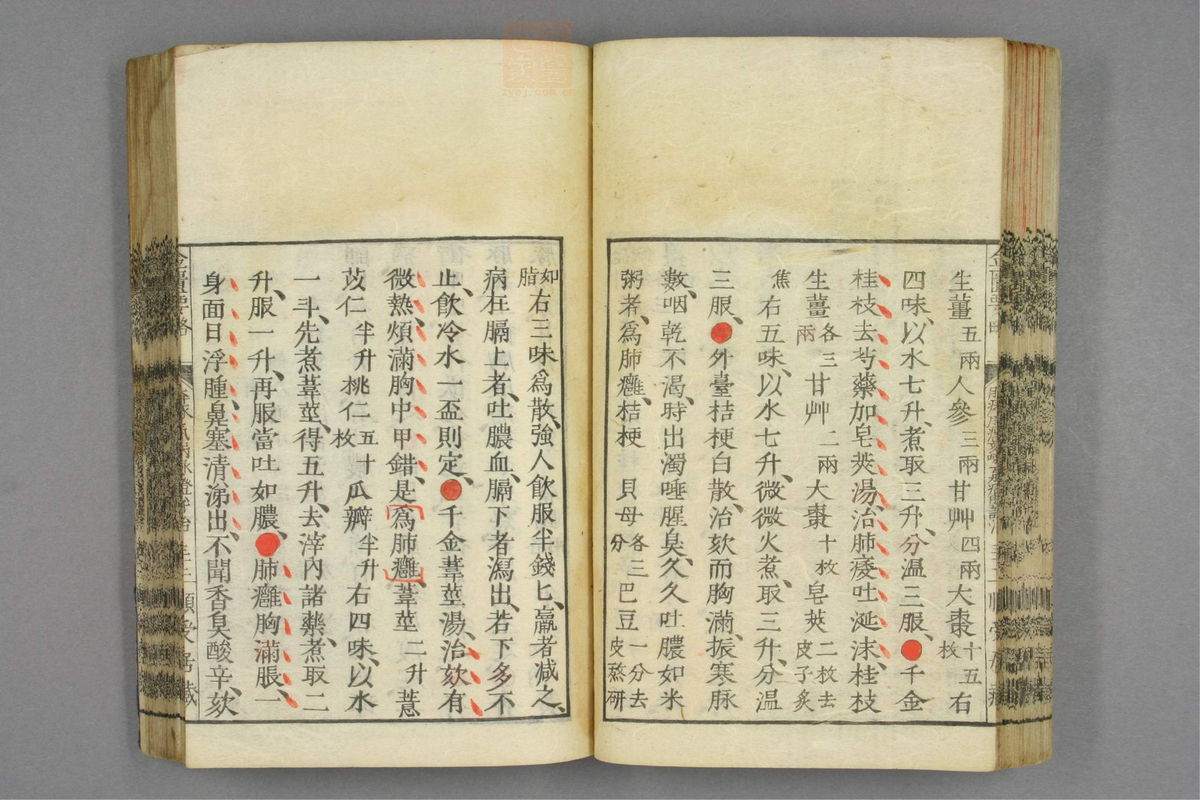 生薑五兩人參三兩甘艸四兩大棗十五枚右
四味、以水七升、煮取三升、分溫三服、●千金
桂枝去芍藥加皂莢湯、治肺痿吐涎沫、桂枝
生薑各三兩甘艸二兩大棗十枚皂莢二枚去皮子炙
焦右五味、以水七升、微微火煮、取三升、分溫
三服、●外臺桔梗白散、治欬而胸滿、振寒脉
數、咽乾不渴、時出濁唾腥臭、久久吐膿如米
粥者、爲肺癰、桔梗貝母各三分巴豆一分去皮熬研
如脂右三味爲散、強人飲服半錢匕、羸者減之、
病在膈上者、吐膿血、膈下者瀉出、若下多不
止、飲冷水一盃則定、●千金葦莖湯、治欬有
微熱、煩滿胸中甲錯、是爲肺癰、葦莖二升薏
苡仁半升桃仁五十枚瓜瓣半升右四味、以水
一斗、先煮葦莖、得五升、去滓內諸藥、煮取二
升、服一升、再服當吐如膿、●肺癰胸滿脹、一
身面目浮腫、鼻塞清涕出、不聞香臭酸辛、欬